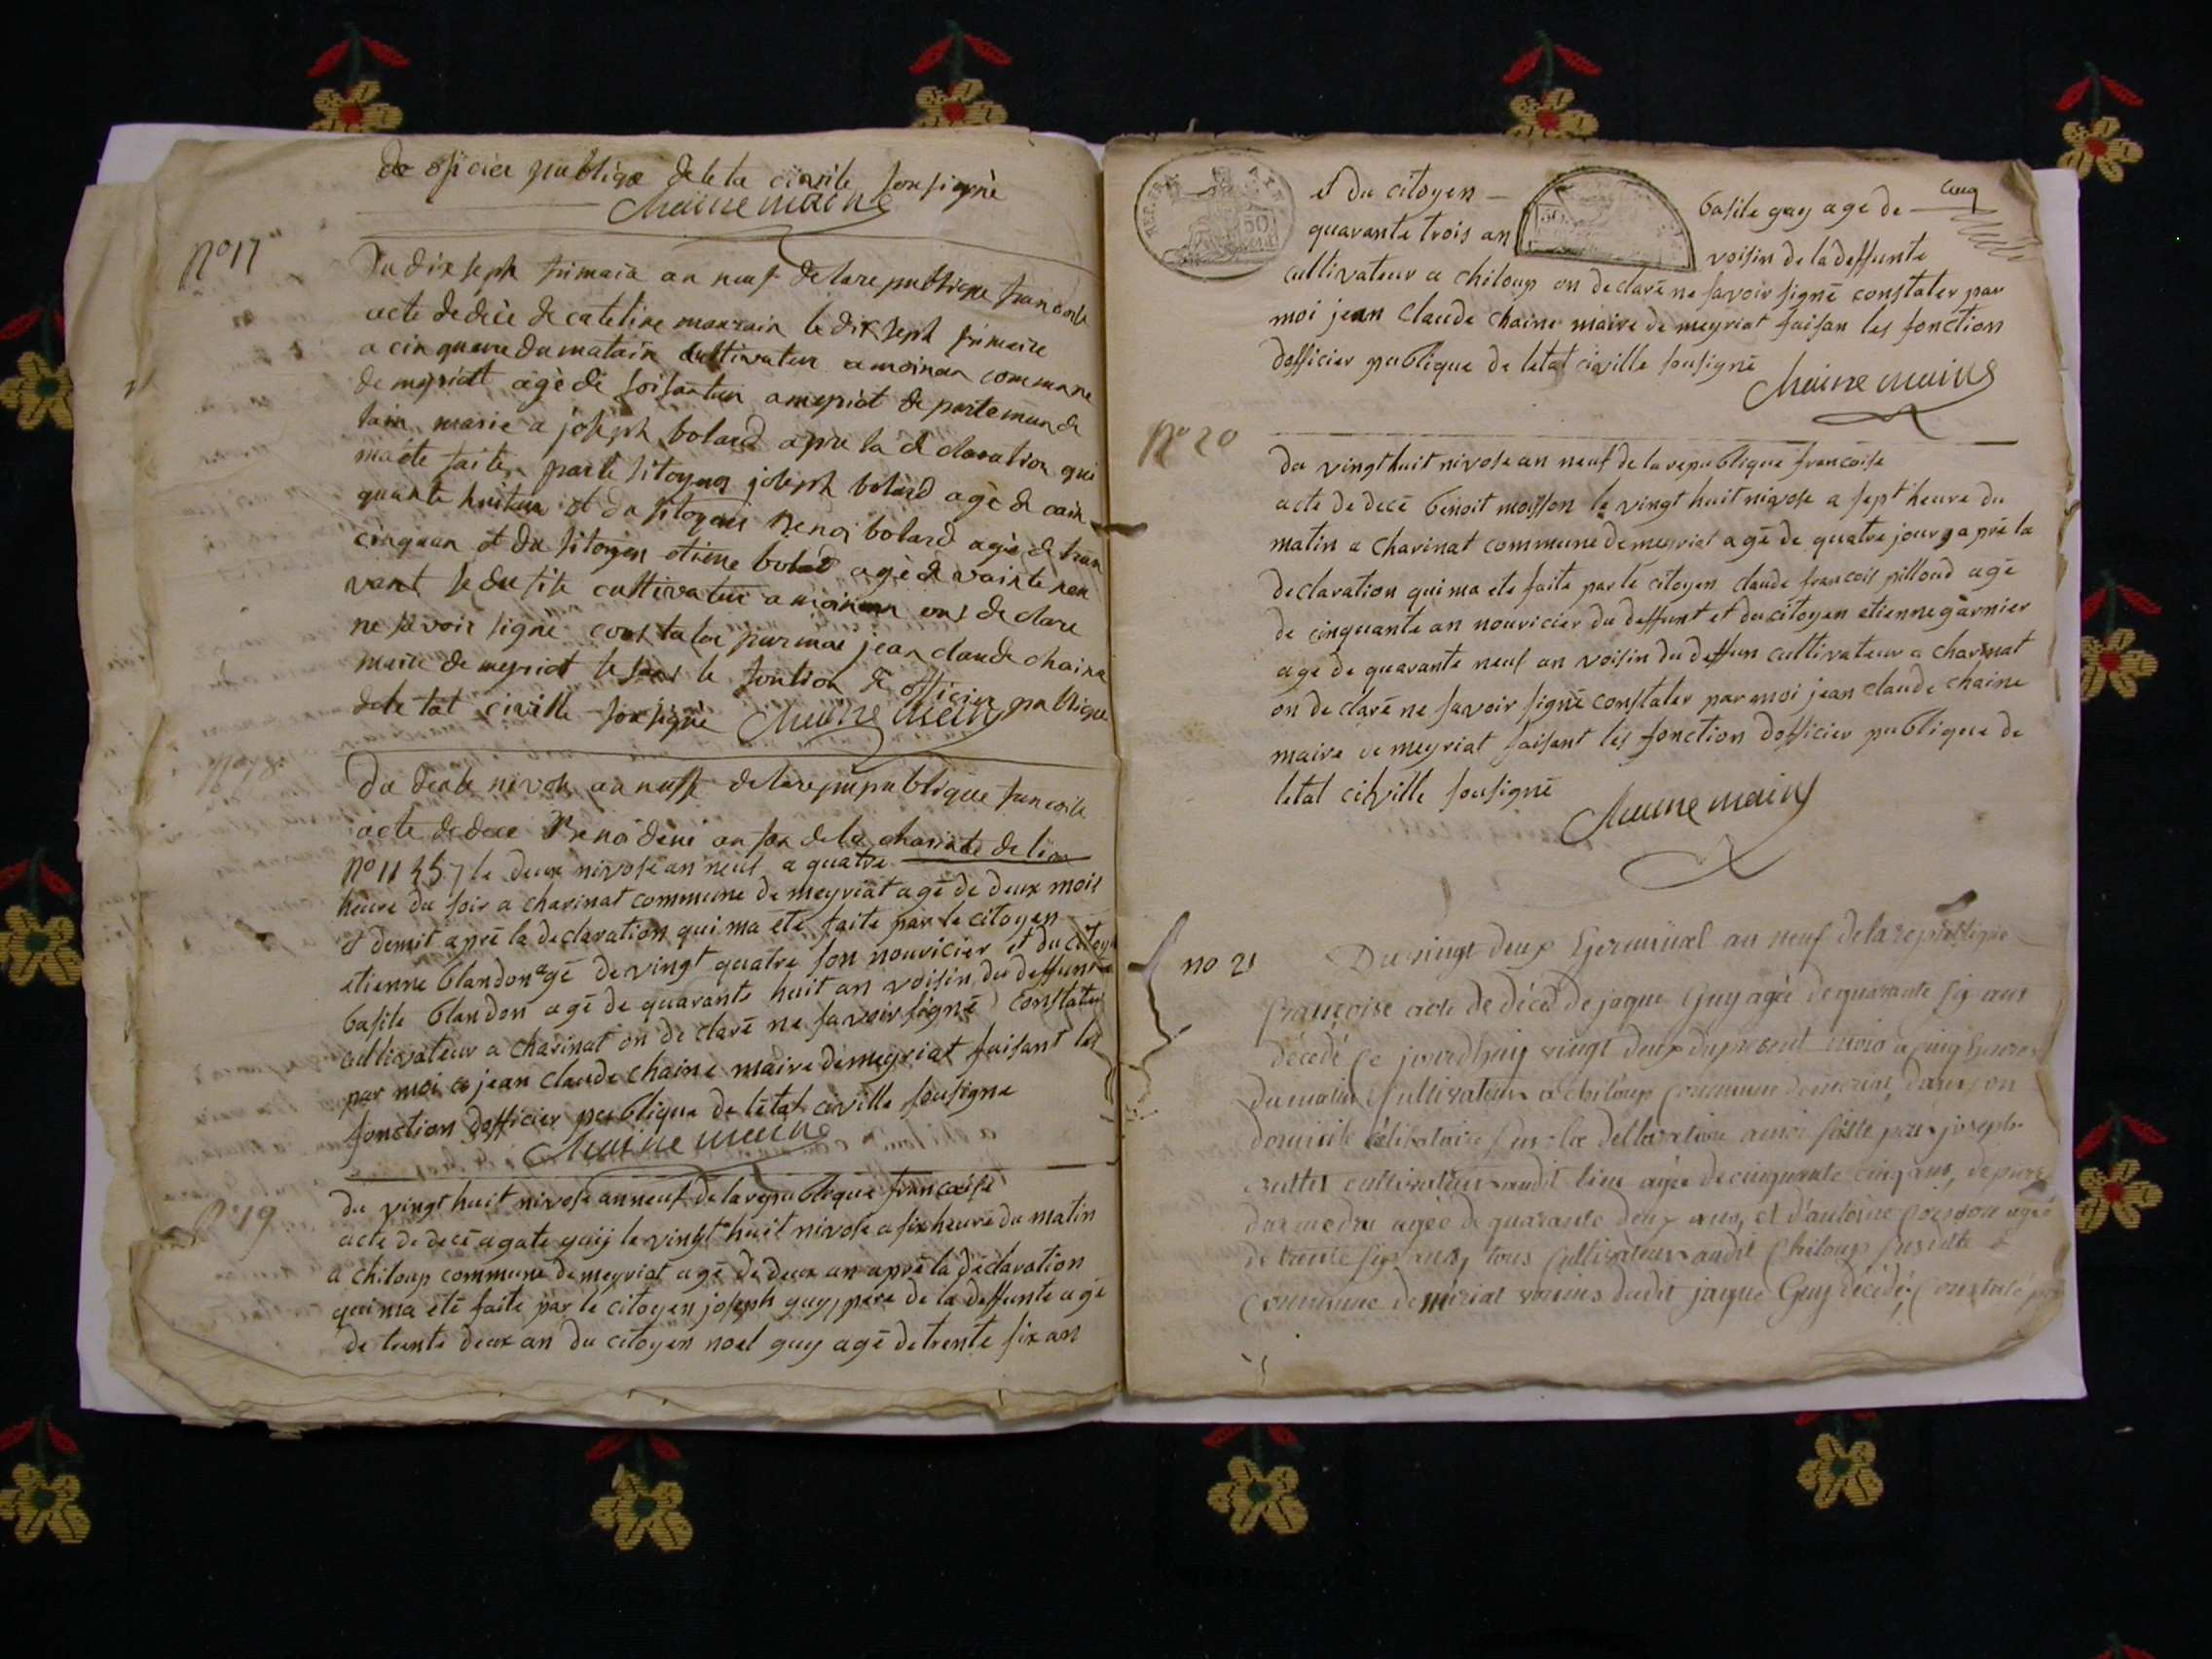 de oficier publique de leta civile sousignè
Chaine maire
N° 17
Du dix seph frimaire an neuf de la republique francoise
acte de decè de cateline mauzain le dix seph frimaire
a cinq heure du matain cultivateur a moinan commune
de meyriat agè de soisantun a meyriat de partemun de
lain marie a joseph bolard apre la de claration qui
ma ète faite par le sitoyen joseph bolard agè de cain
quante huitun et du sitoyen Benoi bolard agè de tran
cinquan et du sitoyen etiene bolard agè de vainte nen
vant se du site cultivateur a moinan ons de clare
ne savoir signe constater par moi jean claude chaine
maire de meyriat fesans le fontion de officier publique
de le tat civille sousigne Chaine maire
N° 18
Du deube nivose an neuff de la repupublique francoise
acte de dece Benoi deni an fan de la charitè de lion
N° 11457 le deux nivose an neuf a quatre
heure du soir a charinat commune de meyriat agé de deux mois
et demit apré la declaration qui ma été faite par le citoyen
etienne blandon agé de vingt quatre son nouricier et du citoyen
basile blandon agé de quarante huit an voisin du deffunt
cultivateur a charinat on de claré ne savoir signé constater
par moi jean claude chaine maire de meyriat faisant les
fonction dofficier publique de létat civille sousigne
Chaine maire
N° 19
du vingt huit nivose an neuf de la republique francoise
acte de decé agate guy le vingt huit nivose a six heure du matin
a chiloup commune de meyriat agé de deux an apré la declaration
qui ma été faite par le citoyen joseph guy père de la deffunte agé
de trente deux an du citoyen noel guy agé de trente six an
et du citoyen basile guy age de
quarante trois an voisin de la deffunte
cultivateur a chiloup on declaré ne savoir signé constater par
moi jean claude chaine maire de meyriat faisan les fonction
dofficier publique de letat civille sousigné
Chaine maire
N° 20
du vingt huit nivose an neuf de la republique francoise
acte de decé benoit moisson le vingt huit nivose a sept heure du
matin a charinat commune de meyriat agé de quatre jours apré la
declaration qui ma eté faite par le citoyen claude francois pilloud agé
de cinquante an nouricier du deffunt et du citoyen etienne garnier
age de quarante neuf an voisin du deffun cultivateur a charinat
on de claré ne savoir signé constater par moi jean claude chaine
maire de meyriat faisant les fonction dofficier publique de
letat civille sousigné
Chaine maire
no 21
Du vingt deux Germinal an neuf de la republique
françoise acte de décès de jaque Guy agée de quarante six ans
décedé ce jourdhuy vingt deux du present mois a cinq heures
du matin Cultivateur a Chiloup Commune de meriat, dans son
domicile célibataire sur la declaration a moi faitte par joseph
cultivateur audit lieu agée de cinquante cinq ans, de pierre
agée de quarante deux ans, et d'antoine poisson agée
de trente six ans, tous Cultivateurs audit Chiloup susdite
Commune de meriat voisins dudit jaque Guy décédé, Constaté par